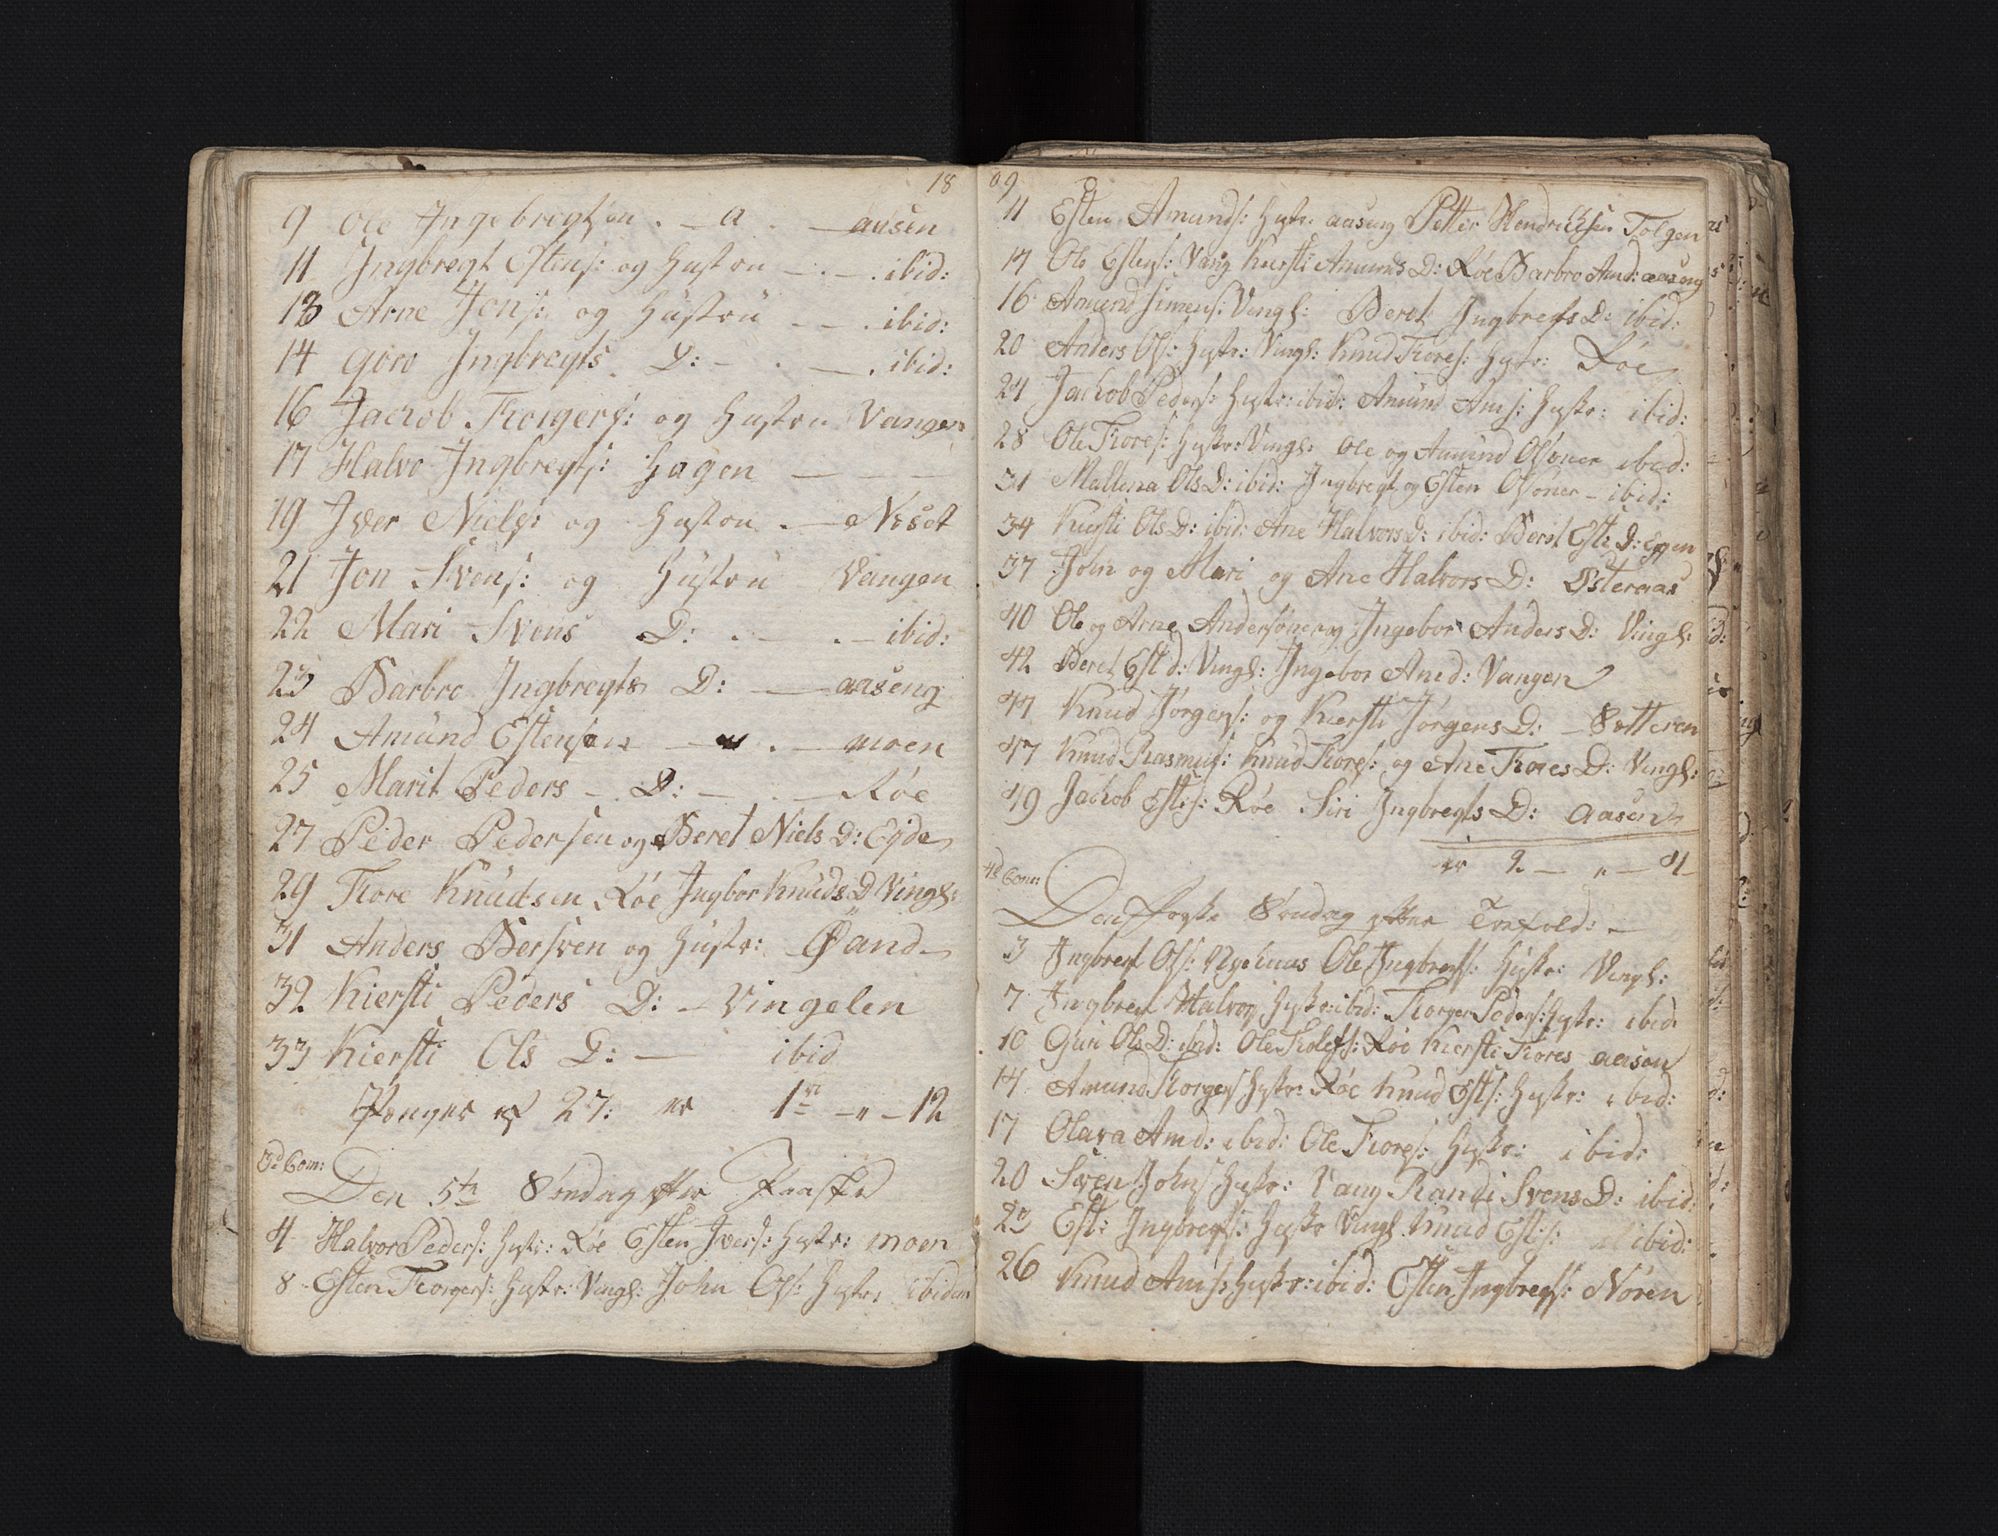 18
9 Ole Ingebregtsen . — a . — aasen
11 Ingbregt Estens: og Hustru — . — . ibid:
13 Arne Jons: og Hustru — . — . ibid:
14 Goro Ingbregts D: — . — . ibid:
16 Jacob Torgers: og Hustru Vangen
17 Halvo Ingbregts: Hagen — — —
19 Iver Niels: og Hustru . — Neset
21 Jon Svens: og Hustru Vangen
22 Mari Svens D: . — . — ibid:
23 Barbro Ingbregts D: — — aaseng
24 Amund Estensen — . — moen
25 Marit Peders — D: — . — Røe
27 Peder Pedersen og Beret Niels D: Eide
29 Tore Knudsen Røe Ingbor Knuds D Vingl:
31 Anders Bersven og Hustr: Øand
32 Kiersti Peders D: — Vingelen
33 Kiersti Ols D: — ibid
Penger af 27: er 1 — " — 12
3d Com:
Den 5te Søndag efter Paaske
4 Halvor Peders: Hustr: Røe Esten Ivers: Hustr: moen
8 Esten Torgers: Hustr: Vingl: John Ols: Hustr: ibidem
09
11 Esten Amunds: Hustr: aaseng Petter Hendrichsen Tolgen
14 Ole Estens: Vang Kiersti Amunds D: Røe Barbro Amd: aaseng
16 Amund Simens: Vingl: Beret Ingbregts D: ibid:
20 Anders Ols: Hustr: Vingl: Knud Tores: Hustr: Røe
24 Jachob Peders: Hustr: ibid: Amund Ams: Hustr: ibid:
28 Ole Tores: Hustr: Vingl: Ole og Amund Olsøner ibid:
31 Mallena Ols D: ibid: Ingbregt og Esten Olsøner — ibid:
34 Kiersti Ols D: ibid: Ane Halvors D: ibid: Beret Est: D: Eggen
37 John og Mari og Ane Halvors D: Østeraas
40 Ole og Arne Andersøner og Ingebor Anders D: Vingl:
42 Beret Est d: Vingl: Ingebor Am d: Vangen
44 Knud Jørgens: og Kiersti Jørgens D: — Sætteren
47 Knud Rasmus: Knud Tores: og Ane Tores D: Vingl:
49 Jachob Ests: Røe Siri Ingbregts D: aasen
er 2 — " — 4
4de Com:
Den Første Søndag efter Trefold: —
3 Ingbregt Ols: Nyehuus Ole Ingbregts: Hustr: Vingl:
7 Ingbregt Halvors: Hustr: ibid: Torger Peders: Hustr: ibid:
10 Guri Ols D: ibid: Ole Tolefs: Røe Kiersti Tores aasen
14 Amund Torgers: Hustr: Røe Knud Ests: Hustr: ibid:
17 Olava Amd: ibid: Ole Tores: Hustr: ibid:
20 Sven Johns Hustr: Vang Randi Svens D: ibid:
23 Est: Ingbregts: Hustr Vingl. Knud Ests: ibid:
26 Knud Ams: Hustr: ibid: Esten Ingbregts: Nören